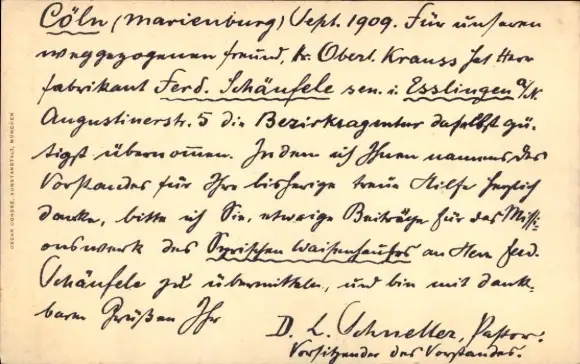 Cöln (Marienburg) Sept. 1909. Für unseren
weggezogenen Freund, Hr. Oberl. Krauss hat Herr
Fabrikant Ferd. Schäufele sen. i. Esslingen a/N.
Augustinerstr. 5 die Bezirksagentur daselbst gü-
tigst übernommen. Indem ich Ihnen namens des
Vorstandes für Ihre bisherige treue Hilfe herzlich
danke, bitte ich Sie, etwaige Beiträge für das Missi-
onswerk des Syrischen Waisenhauses an Herrn Ferd.
Schäufele zu übermitteln, und bin mit dank-
baren Grüßen Ihr
D. L. Schneller, Pastor.
Vorsitzender des Vorstandes.
OSCAR CONSÉE, KUNSTANSTALT, MÜNCHEN